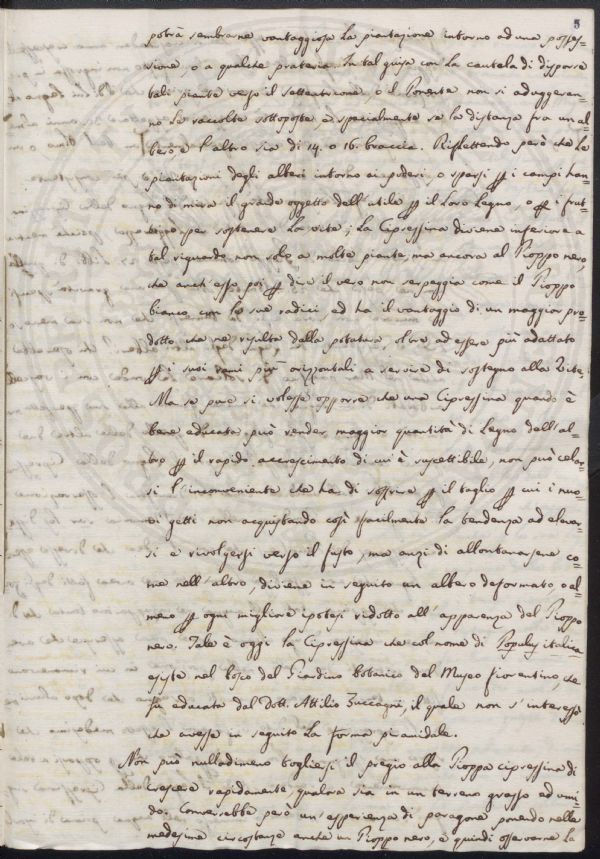 5
potrà sembrarne vantaggiosa la piantazione intorno ad una posses-
sione, o a qualche prateria. In tal guisa con la cautela di disporre
tali piante verso il settentrione, o il Ponente non si aduggeran-
no le raccolte sottoposte, e specialmente se la distanza fra un al-
bero e l'altro sia di 14. o 16. braccia. Riflettendo però che le
piantazioni degli alberi intorno ai poderi, o sparsi ꝑ i campi han-
no di mira il grande oggetto dell'utile ꝑ il loro Legno, o ꝑ i frut-
ti, o per sostenere la vite; la Cipressina diviene inferiore a
tal riguardo non solo a molte piante, ma ancora al Pioppo nero,
che anch'esso poi ꝑ dire il vero non serpeggia come il Pioppo
bianco con le sue radici, ed ha il vantaggio di un maggior pro-
dotto che ne risulta dalla potatura, oltre ad essere più adattato
ꝑ i suoi rami più orizzontali a servire di sostegno alla Vite.
Ma se pure si volesse opporre che una Cipressina quando è
bene educata può render maggior quantità di Legno dell'al-
tro ꝑ il rapido accrescimento di cui è suscettibile, non può celar-
si l'inconveniente che ha di soffrire ꝑ il taglio ꝑ cui i nuo-
vi getti non acquistando così facilmente la tendenza ad elevar-
si e rivolgersi verso il fusto, ma anzi di allontanarsene co-
me nell'altro, diviene in seguito un albero deformato, o al-
meno ꝑ ogni migliore ipotesi ridotto all'apparenza del Pioppo
nero. Tale è oggi la Cipressina che col nome di Populus italica
esiste nel bosco del Giardino botanico del Museo fiorentino, che
fu educata dal Dott. Attilio Zuccagni, il quale non s'interessò
che avesse in seguito la forma piramidale.
Non può nulladimeno togliersi il pregio alla Pioppa cipressina di
crescere rapidamente, qualora sia in un terreno grasso ed umi-
do. Converrebbe però un'esperienza di paragone ponendo nelle
medesime circostanze anche un Pioppo nero, e quindi osservarne la